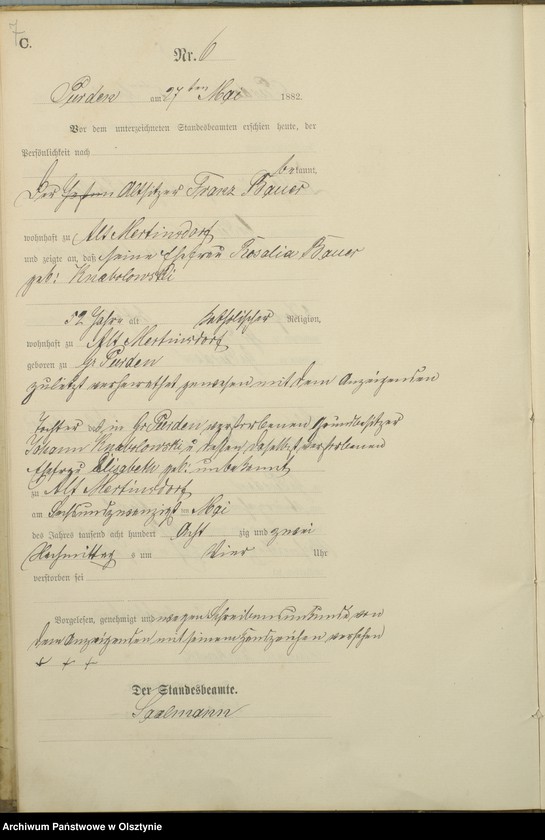 7
C.
Nr. 6
Purden am 27ten Mai 1882.
Vor dem unterzeichneten Standesbeamten erschien heute, der
Persönlichkeit nach
bekannt,
Der Altsitzer Franz Bauer
wohnhaft zu Alt Mertinsdorf
und zeigte an, daß seine Ehefrau Rosalia Bauer
geb: Knabolowski
52 Jahre alt katholischer Religion,
wohnhaft zu Alt Mertinsdorf
geboren zu Gr Purden
zuletzt verheirathet gewesen mit dem Anzeigenden
Tochter des in Gr Purden verstorbenen Grundbesitzer
Johann Knabolowski u dessen daselbst verstorbenen
Ehefrau Elisabeth geb: unbekannt
zu Alt Mertinsdorf
am Sechsundzwanzigsten Mai
des Jahres tausend acht hundert Acht zig und zwei
Nachmittag s um Vier Uhr
verstorben sei
Vorgelesen, genehmigt und wegen Schreibensunkunde von
dem Anzeigenden mit seinem Handzeichen versehen
+ + +
Der Standesbeamte.
Saalmann
Archiwum Państwowe w Olsztynie